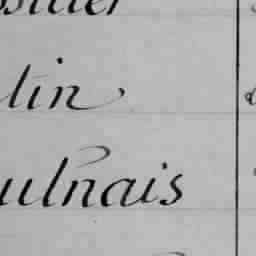 ssitier
tin
ulnais